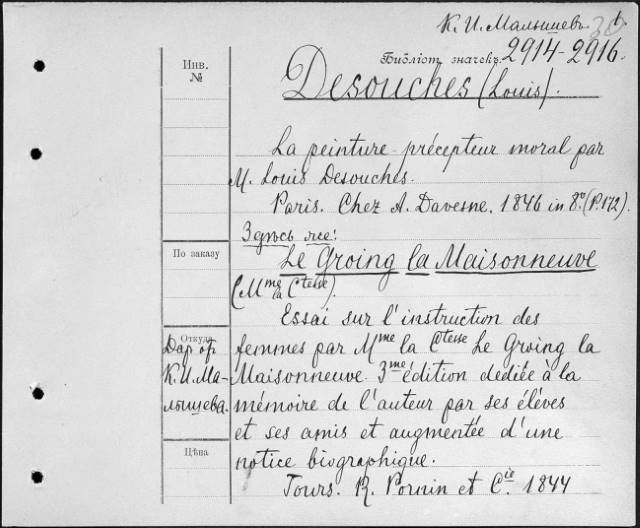 К. И. Малышев
Библіот значекъ 2914-2916.
Инв.
№
Desouches (Louis).
La peinture précepteur moral par
M. Louis Desouches.
Paris. Chez A. Davesne. 1846 in 8º. (P. 172).
Здѣсь же:
По заказу
Le Groing la Maisonneuve
(Mme la Ctesse).
Essai sur l'instruction des
Откуда
femmes par Mme la Ctesse Le Groing la
Даръ
К. И. Ма-
лышева.
Maisonneuve 3me édition dédiée à la
mémoire de l'auteur par ses élèves
et ses amis et augmentée d'une
Цѣна
notice biographique.
Tours. R. Pornin et Cie. 1844